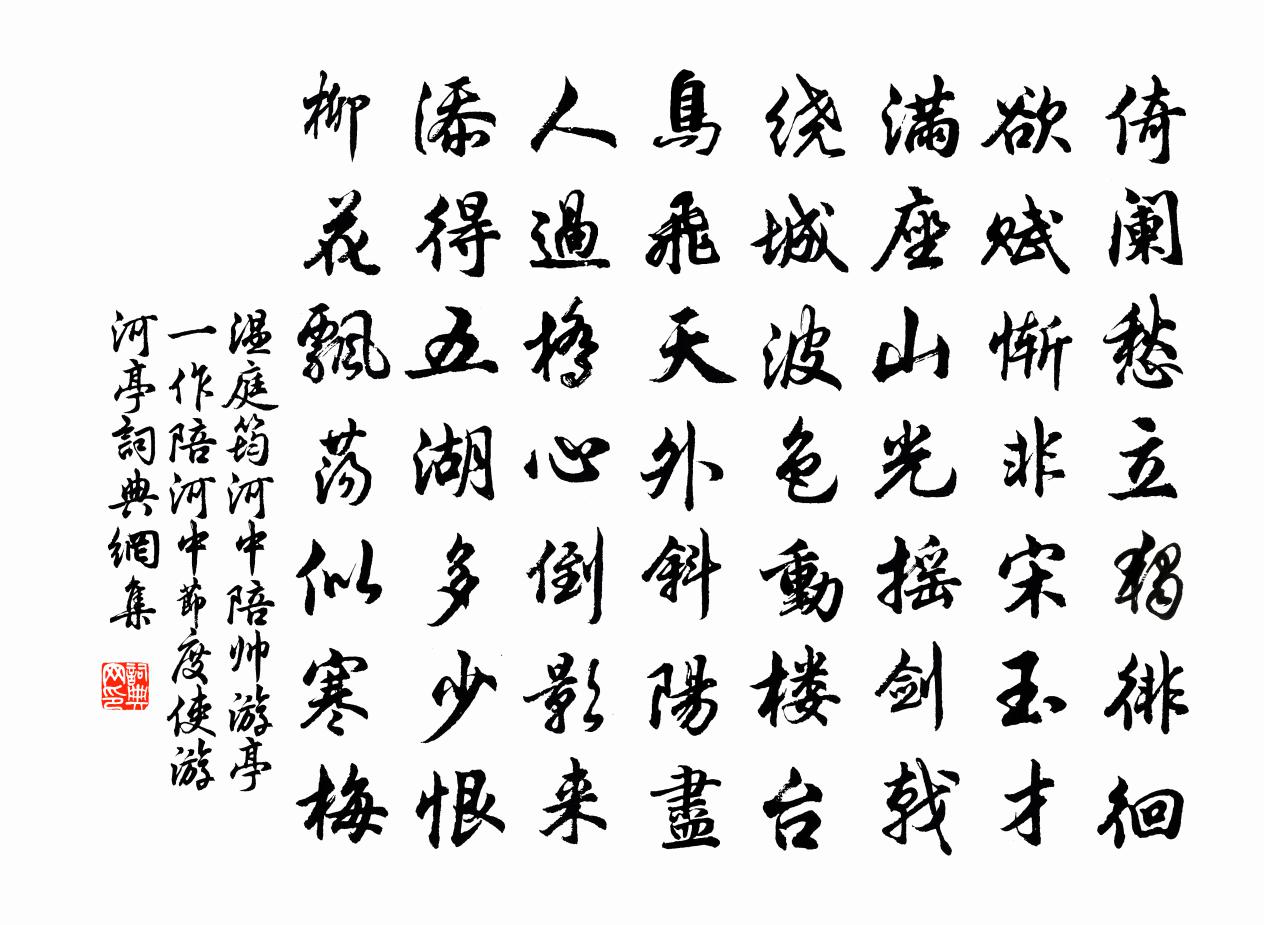 倚阑愁立獨徘徊
欲赋惭非宋玉才
满座山光摇剑戟
绕城波色動楼台
鳥飛天外斜陽盡
人過橋心倒影来
添得五湖多少恨
柳花飄荡似寒梅
温庭筠河中陪帅游亭
一作陪河中節度使游
河亭詞典網集
詞典网印